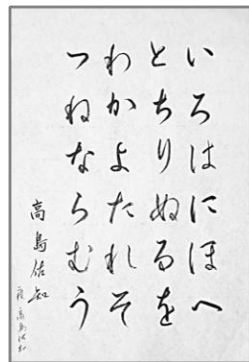 いろはにほへ
とちりぬるを
わかよたれそ
つねならむう
高島佶知